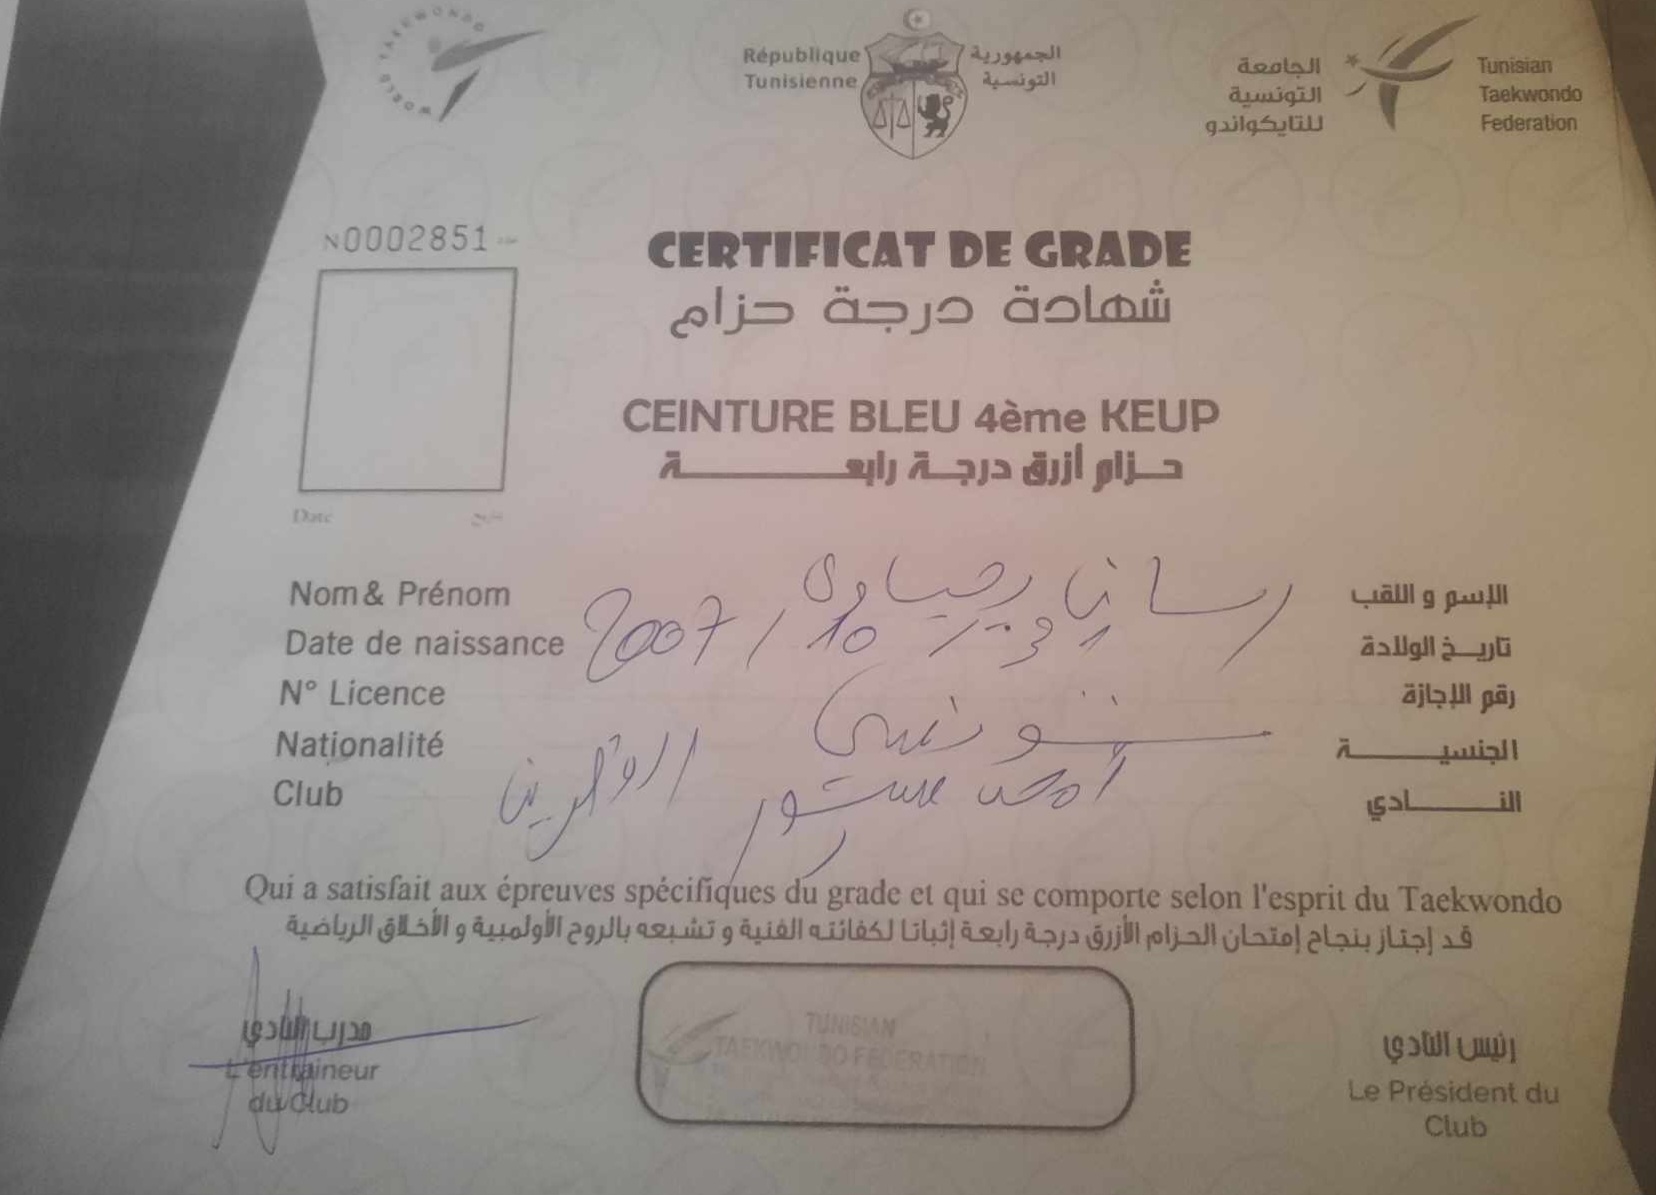 WORLD TAEKWONDO
République الجمهورية
Tunisienne التونسية
الجامعة Tunisian
التونسية Taekwondo
للتايكواندو Federation
N0002851
CERTIFICAT DE GRADE
شهادة درجة حزام
CEINTURE BLEU 4ème KEUP
حزام أزرق درجة رابعة
Date
Nom& Prénom الإسم و اللقب
Date de naissance 2007 / 10 / 3 تاريخ الولادة
N° Licence رقم الإجازة
Nationalité تونسي الجنسية
Club النادي
Qui a satisfait aux épreuves spécifiques du grade et qui se comporte selon l'esprit du Taekwondo
قد إجتاز بنجاح إمتحان الحزام الأزرق درجة رابعة إثباتا لكفائته الفنية و تشبعه بالروح الأولمبية و الأخلاق الرياضية
مدرب النادي
L'entraineur
du Club
TUNISIAN
TAEKWONDO FEDERATION
رئيس النادي
Le Président du
Club